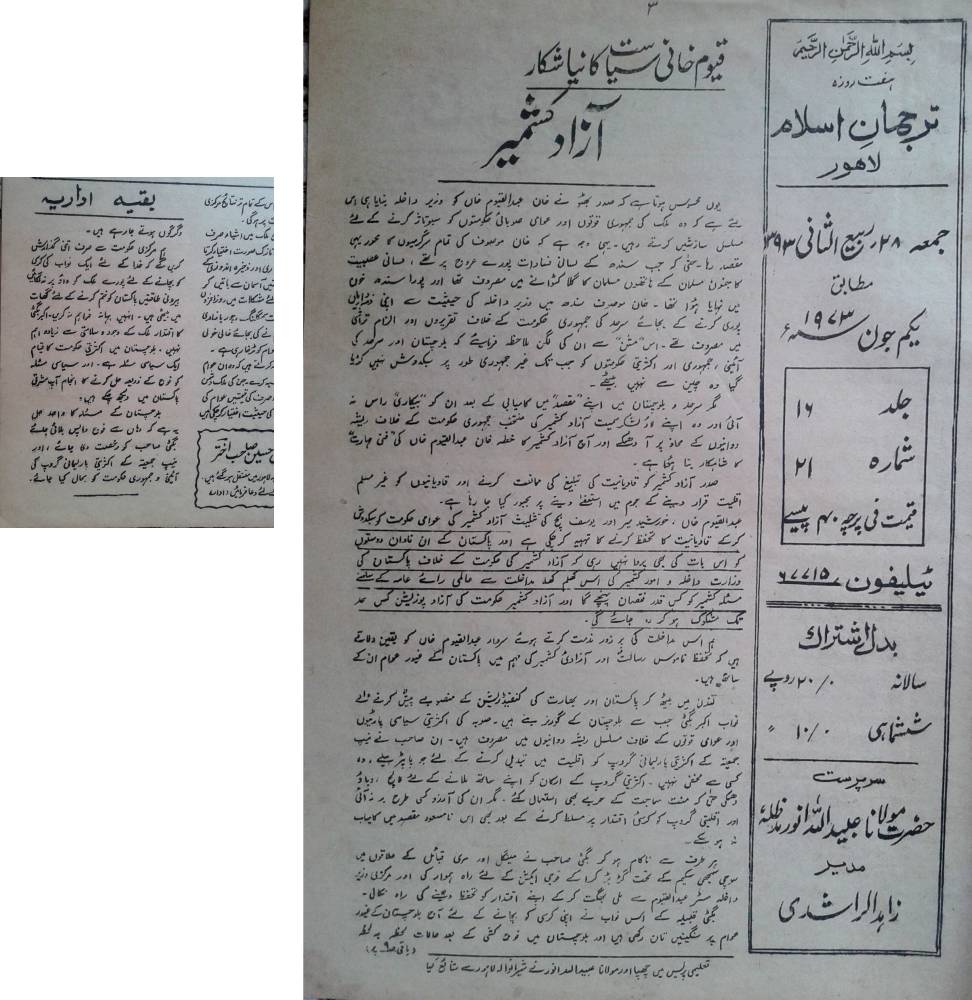 ۳
بسم اللہ الرحمٰن الرحیم
ہفت روزہ
ترجمان اسلام
لاہور
جمعہ ۲۸ ربیع الثانی ۱۳۹۳ھ
مطابق
یکم جون ۱۹۷۳ سنہ ء
جلد ۱۶
شمارہ ۲۱
قیمت فی پرچہ ۴۰ پیسے
ٹیلیفون ۶۷۷۱۵
بدل اشتراک
سالانہ ۲۰/۰ روپے
ششماہی ۱۰/۰ "
سرپرست
حضرت مولانا عبید اللہ انور مدظلہٗ
مدیر
زاہد الراشدی
قیوم خانی سیاست کا نیا شکار
آزاد کشمیر
یوں محسوس ہوتا ہے کہ صدر بھٹو نے خان عبدالقیوم خاں کو وزیر داخلہ بنایا ہی اس
لئے ہے کہ وہ ملک کی جمہوری قوتوں اور عوامی صوبائی حکومتوں کو سبوتاژ کرنے کے لئے
مسلسل سازشیں کرتے رہیں۔ یہی وجہ ہے کہ خان موصوف کی تمام سرگرمیوں کا محور یہی
مقصد رہا۔ حتیٰ کہ جب سندھ کے لسانی فسادات پورے عروج پر تھے، لسانی عصبیت
کا جنون مسلمان کے ہاتھوں مسلمان کا گلا کٹوانے میں مصروف تھا اور پورا سندھ خون
میں نہایا پڑا تھا۔ خان موصوف سندھ میں وزیر داخلہ کی حیثیت سے اپنی ذمہ داریاں
پوری کرنے کے بجائے سرحد کی جمہوری حکومت کے خلاف تقریروں اور الزام تراشی
میں مصروف تھے۔ اس "مشن" سے ان کی لگن ملاحظہ فرمایئے کہ بلوچستان اور سرحد کی
آئینی، جمہوری اور اکثریتی حکومتوں کو جب تک غیر جمہوری طور پر سبکدوش نہیں کر دیا
گیا وہ چین سے نہیں بیٹھے۔
مگر سرحد و بلوچستان میں اپنے "مقصد" میں کامیابی کے بعد ان کو "بیکاری" راس نہ
آئی اور وہ اپنے لاؤ لشکر سمیت آزاد کشمیر کی منتخب جمہوری حکومت کے خلاف ریشہ
دوانیوں کے محاذ پر آ دھمکے اور آج آزاد کشمیر کا خطہ خان عبدالقیوم خاں کی "فنی مہارت"
کا شاہکار بنا ہوا ہے۔
صدر آزاد کشمیر کو قادیانیت کی تبلیغ کی ممانعت کرنے اور قادیانیوں کو غیر مسلم
اقلیت قرار دینے کے جرم میں استعفےٰ دینے پر مجبور کیا جا رہا ہے۔
عبدالقیوم خاں، خورشید اور یوسف بچ کی تثلیث آزاد کشمیر کی عوامی حکومت کو سبکدوش
کرکے قادیانیت کا تحفظ کرنے کا تہیہ کر چکی ہے اور پاکستان کے ان نادان دوستوں
کو اس بات کی بھی پروا نہیں رہی کہ آزاد کشمیر کی حکومت کے خلاف پاکستان کی
وزارت داخلہ و امور کشمیر کی اس کھلم کھلا مداخلت سے عالمی رائے عامہ کے سامنے
مسئلہ کشمیر کو کس قدر نقصان پہنچے گا اور آزاد کشمیر حکومت کی آزاد پوزیشن کس حد
تک مشکوک ہو کر رہ جائے گی۔
ہم اس مداخلت کی پر زور مذمت کرتے ہوئے سردار عبدالقیوم خاں کو یقین دلاتے
ہیں کہ تحفظ ناموس رسالت اور آزادیٔ کشمیر کی مہم میں پاکستان کے غیور عوام ان کے
ساتھ ہیں۔
لندن میں بیٹھ کر پاکستان اور بھارت کی کنفیڈریشن کے منصوبے پیش کرنے والے
نواب اکبر بگٹی جب سے بلوچستان کے گورنر بنے ہیں۔ صوبہ کی اکثریتی سیاسی پارٹیوں
اور عوامی قوتوں کے خلاف مسلسل ریشہ دوانیوں میں مصروف ہیں۔ ان صاحب نے نیپ
جمعیۃ کے اکثریتی پارلیمانی گروپ کو اقلیت میں تبدیل کرنے کے لئے جو پاپڑ بیلے، وہ
کسی سے مخفی نہیں۔ اکثریتی گروپ کے ارکان کو اپنے ساتھ ملانے کے لئے لالچ، دباؤ
دھمکی حتیٰ کہ منت سماجت کے حربے بھی استعمال کئے۔ مگر ان کی آرزو کسی طرح بر نہ آئی
اور اقلیتی گروپ کو کرسیٔ اقتدار پر مسلط کرنے کے بعد بھی اس نامسعود مقصد میں کامیاب
نہ ہو سکے۔
ہر طرف سے ناکام ہو کر بگٹی صاحب نے مینگل اور مری قبائل کے علاقوں میں
سوچی سمجھی سکیم کے تحت گڑ بڑ کرا کے فوجی ایکشن کے لئے راہ ہموار کی اور مرکزی وزیر
داخلہ مسٹر عبدالقیوم سے ملی بھگت کر کے اپنے اقتدار کو تحفظ دینے کی راہ نکالی۔
بگٹی قبیلہ کے اس نواب نے اپنی کرسی کو بچانے کے لئے آج بلوچستان کے غیور
عوام پر سنگینیں تان رکھی ہیں اور بلوچستان میں فوج کشی کے بعد حالات لحظہ بہ لحظہ
(باقی صفحہ پر)
تعلیمی پریس میں چھپا اور مولانا عبیداللہ انور نے شیرانوالہ لاہور سے شائع کیا
بقیہ اداریہ
دگرگوں ہوتے جا رہے ہیں۔
ہم مرکزی حکومت سے صرف اتنی گذارش
کریں گے کہ خدا کے لئے ایک نواب کی کرسی
کو بچانے کے لئے پورے ملک کو داؤ پر نہ لگائیں
بیرونی طاقتیں پاکستان کو ختم کرنے کے لئے گھات
میں بیٹھی ہیں۔ انہیں بہانہ فراہم نہ کریں۔ اکبر بگٹی
کا اقتدار ملک کے وجود و سلامتی سے زیادہ اہم
نہیں۔ بلوچستان میں اکثریتی حکومت کا قیام
ایک سیاسی مسئلہ ہے۔ اور سیاسی مسئلہ
کو فوج کے ذریعہ حل کرنے کا انجام آپ مشرقی
پاکستان میں دیکھ چکے ہیں۔
بلوچستان کے مسئلہ کا واحد حل
یہ ہے کہ وہاں سے فوج واپس بلائی جائے
بگٹی صاحب کو رخصت دی جائے، اور
نیپ جمعیتہ کے اکثریتی پارلیمانی گروپ کی
آئینی و جمہوری حکومت کو بحال کیا جائے۔